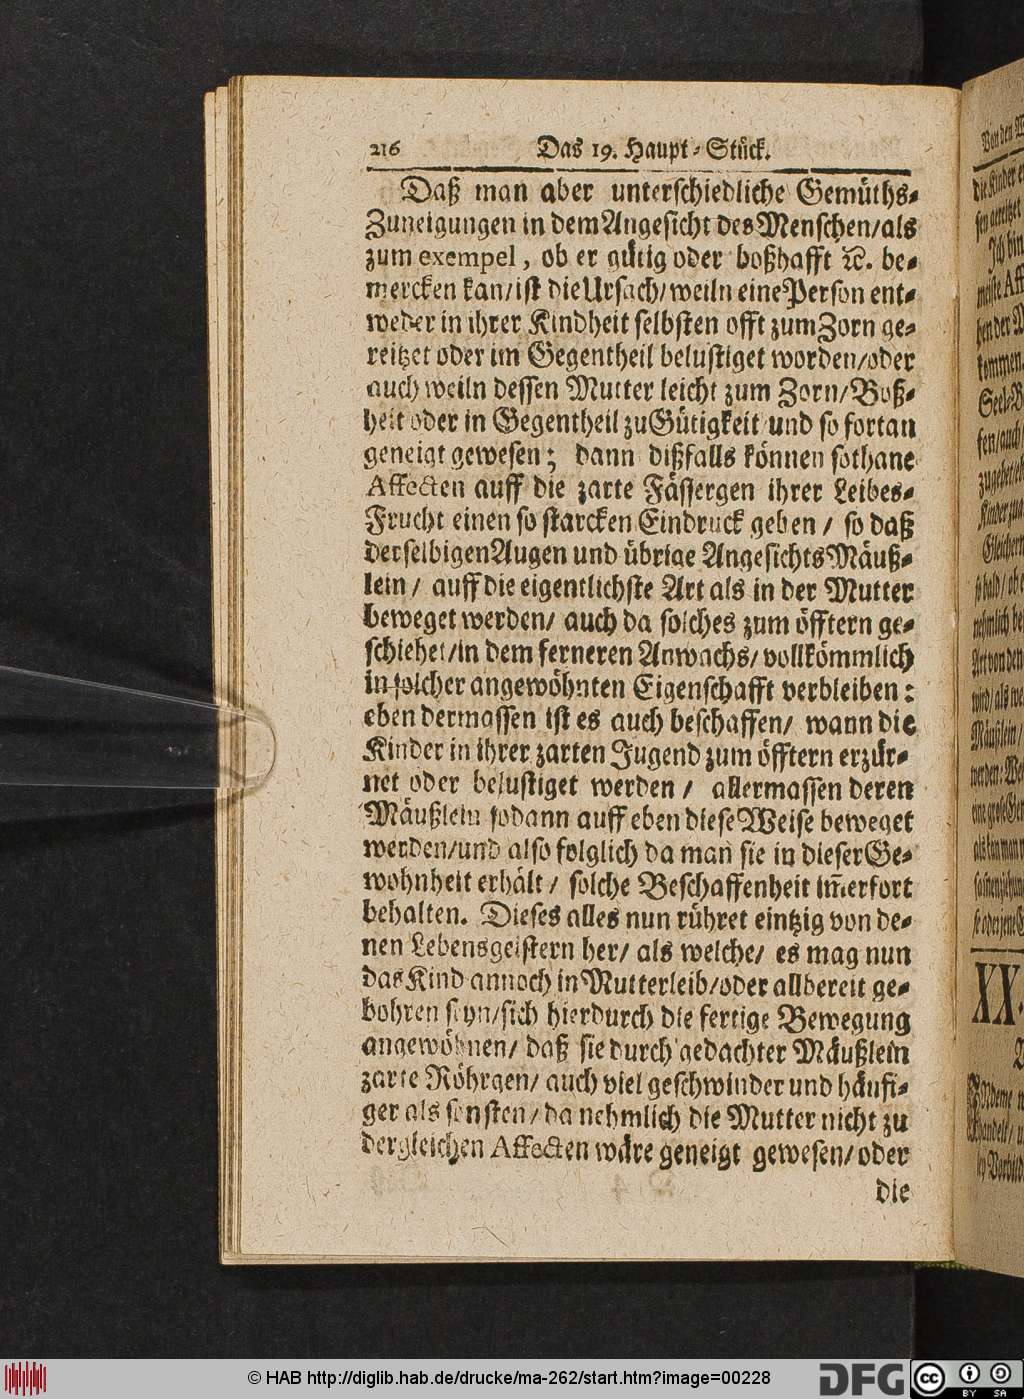 216 Das 19. Haupt-Stück.
Daß man aber unterschiedliche Gemüths-
Zuneigungen in dem Angesicht des Menschen/als
zum exempel, ob er gütig oder boßhafft ꝛc. be-
mercken kan/ist die Ursach/weiln eine Person ent-
weder in ihrer Kindheit selbsten offt zum Zorn ge-
reitzet oder im Gegentheil belustiget worden/oder
auch weiln dessen Mutter leicht zum Zorn/Boß-
heit oder in Gegentheil zu Gütigkeit und so fortan
geneigt gewesen; dann dißfalls können sothane
Affecten auff die zarte Fässergen ihrer Leibes-
Frucht einen so starcken Eindruck geben / so daß
derselbigen Augen und übrige Angesichts Mäuß-
lein / auff die eigentlichste Art als in der Mutter
beweget werden/ auch da solches zum öfftern ge-
schiehet/in dem ferneren Anwachs/vollkömmlich
in solcher angewöhnten Eigenschafft verbleiben:
eben dermassen ist es auch beschaffen/ wann die
Kinder in ihrer zarten Jugend zum öfftern erzür-
net oder belustiget werden / allermassen deren
Mäußlein sodann auff eben diese Weise beweget
werden/und also folglich da man sie in dieser Ge-
wohnheit erhält / solche Beschaffenheit im̄erfort
behalten. Dieses alles nun rühret eintzig von de-
nen Lebensgeistern her/ als welche/ es mag nun
das Kind annoch in Mutterleib/oder allbereit ge-
bohren seyn/sich hierdurch die fertige Bewegung
angewöhnen/ daß sie durch gedachter Mäußlein
zarte Röhrgen/ auch viel geschwinder und häufi-
ger als sonsten/da nehmlich die Mutter nicht zu
dergleichen Affecten wäre geneigt gewesen/oder
die
Von den
die Kinder
Ich bin
kommen.
XX.
© HAB http://diglib.hab.de/drucke/ma-262/start.htm?image=00228
DFG
cc
BY SA